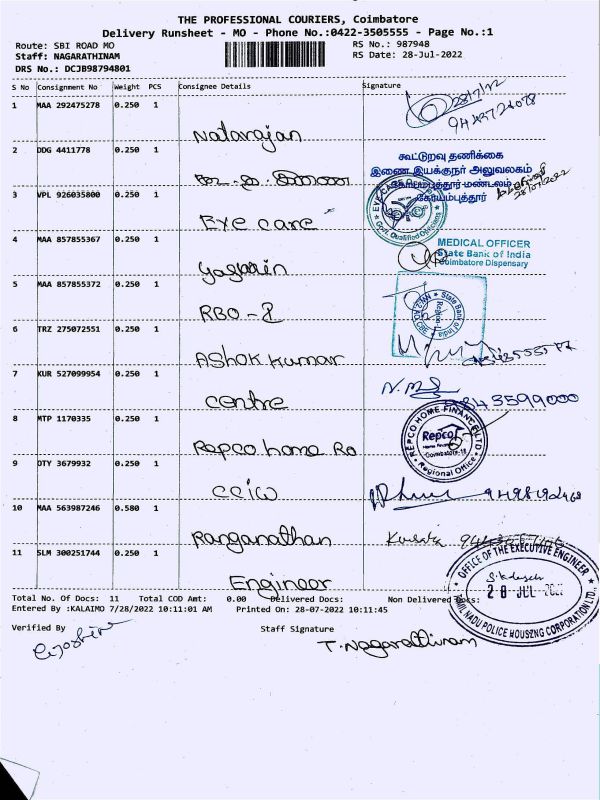 THE PROFESSIONAL COURIERS, Coimbatore
Delivery Runsheet - MO - Phone No.:0422-3505555 - Page No.:1
Route: SBI ROAD MO RS No.: 987948
Staff: NAGARATHINAM RS Date: 28-Jul-2022
DRS No.: DCJB98794801
S No Consignment No Weight PCS Consignee Details Signature
1 MAA 292475278 0.250 1
28/7/22
Natarajan
2 DDG 4411778 0.250 1
கூட்டுறவு தணிக்கை
இணை இயக்குநர் அலுவலகம்
கோயம்புத்தூர் மண்டலம்
கோயம்புத்தூர்
28/07/2022
3 VPL 926035800 0.250 1
EYE CARE
Govt. Qualified Opticians
Eye care
4 MAA 857855367 0.250 1
MEDICAL OFFICER
State Bank of India
Coimbatore Dispensary
Yasmin
5 MAA 857855372 0.250 1
State Bank of India
Region-I
RBO - I
6 TRZ 275072551 0.250 1
Ashok Kumar
7 KUR 527099954 0.250 1
9843599000
centre
8 MTP 1170335 0.250 1
REPCO HOME FINANCE LTD
Repco
Home Finance
Coimbatore-18
Regional Office
Repco home Ro
9 OTY 3679932 0.250 1
CCIW
10 MAA 563987246 0.580 1
Ranganathan
11 SLM 300251744 0.250 1
OFFICE OF THE EXECUTIVE ENGINEER
28 JUL 2022
TAMIL NADU POLICE HOUSING CORPORATION LTD.
Engineer
Total No. Of Docs: 11 Total COD Amt: 0.00 Delivered Docs: Non Delivered Docs:
Entered By :KALAIMO 7/28/2022 10:11:01 AM Printed On: 28-07-2022 10:11:45
Verified By Staff Signature
T. Nagarathinam